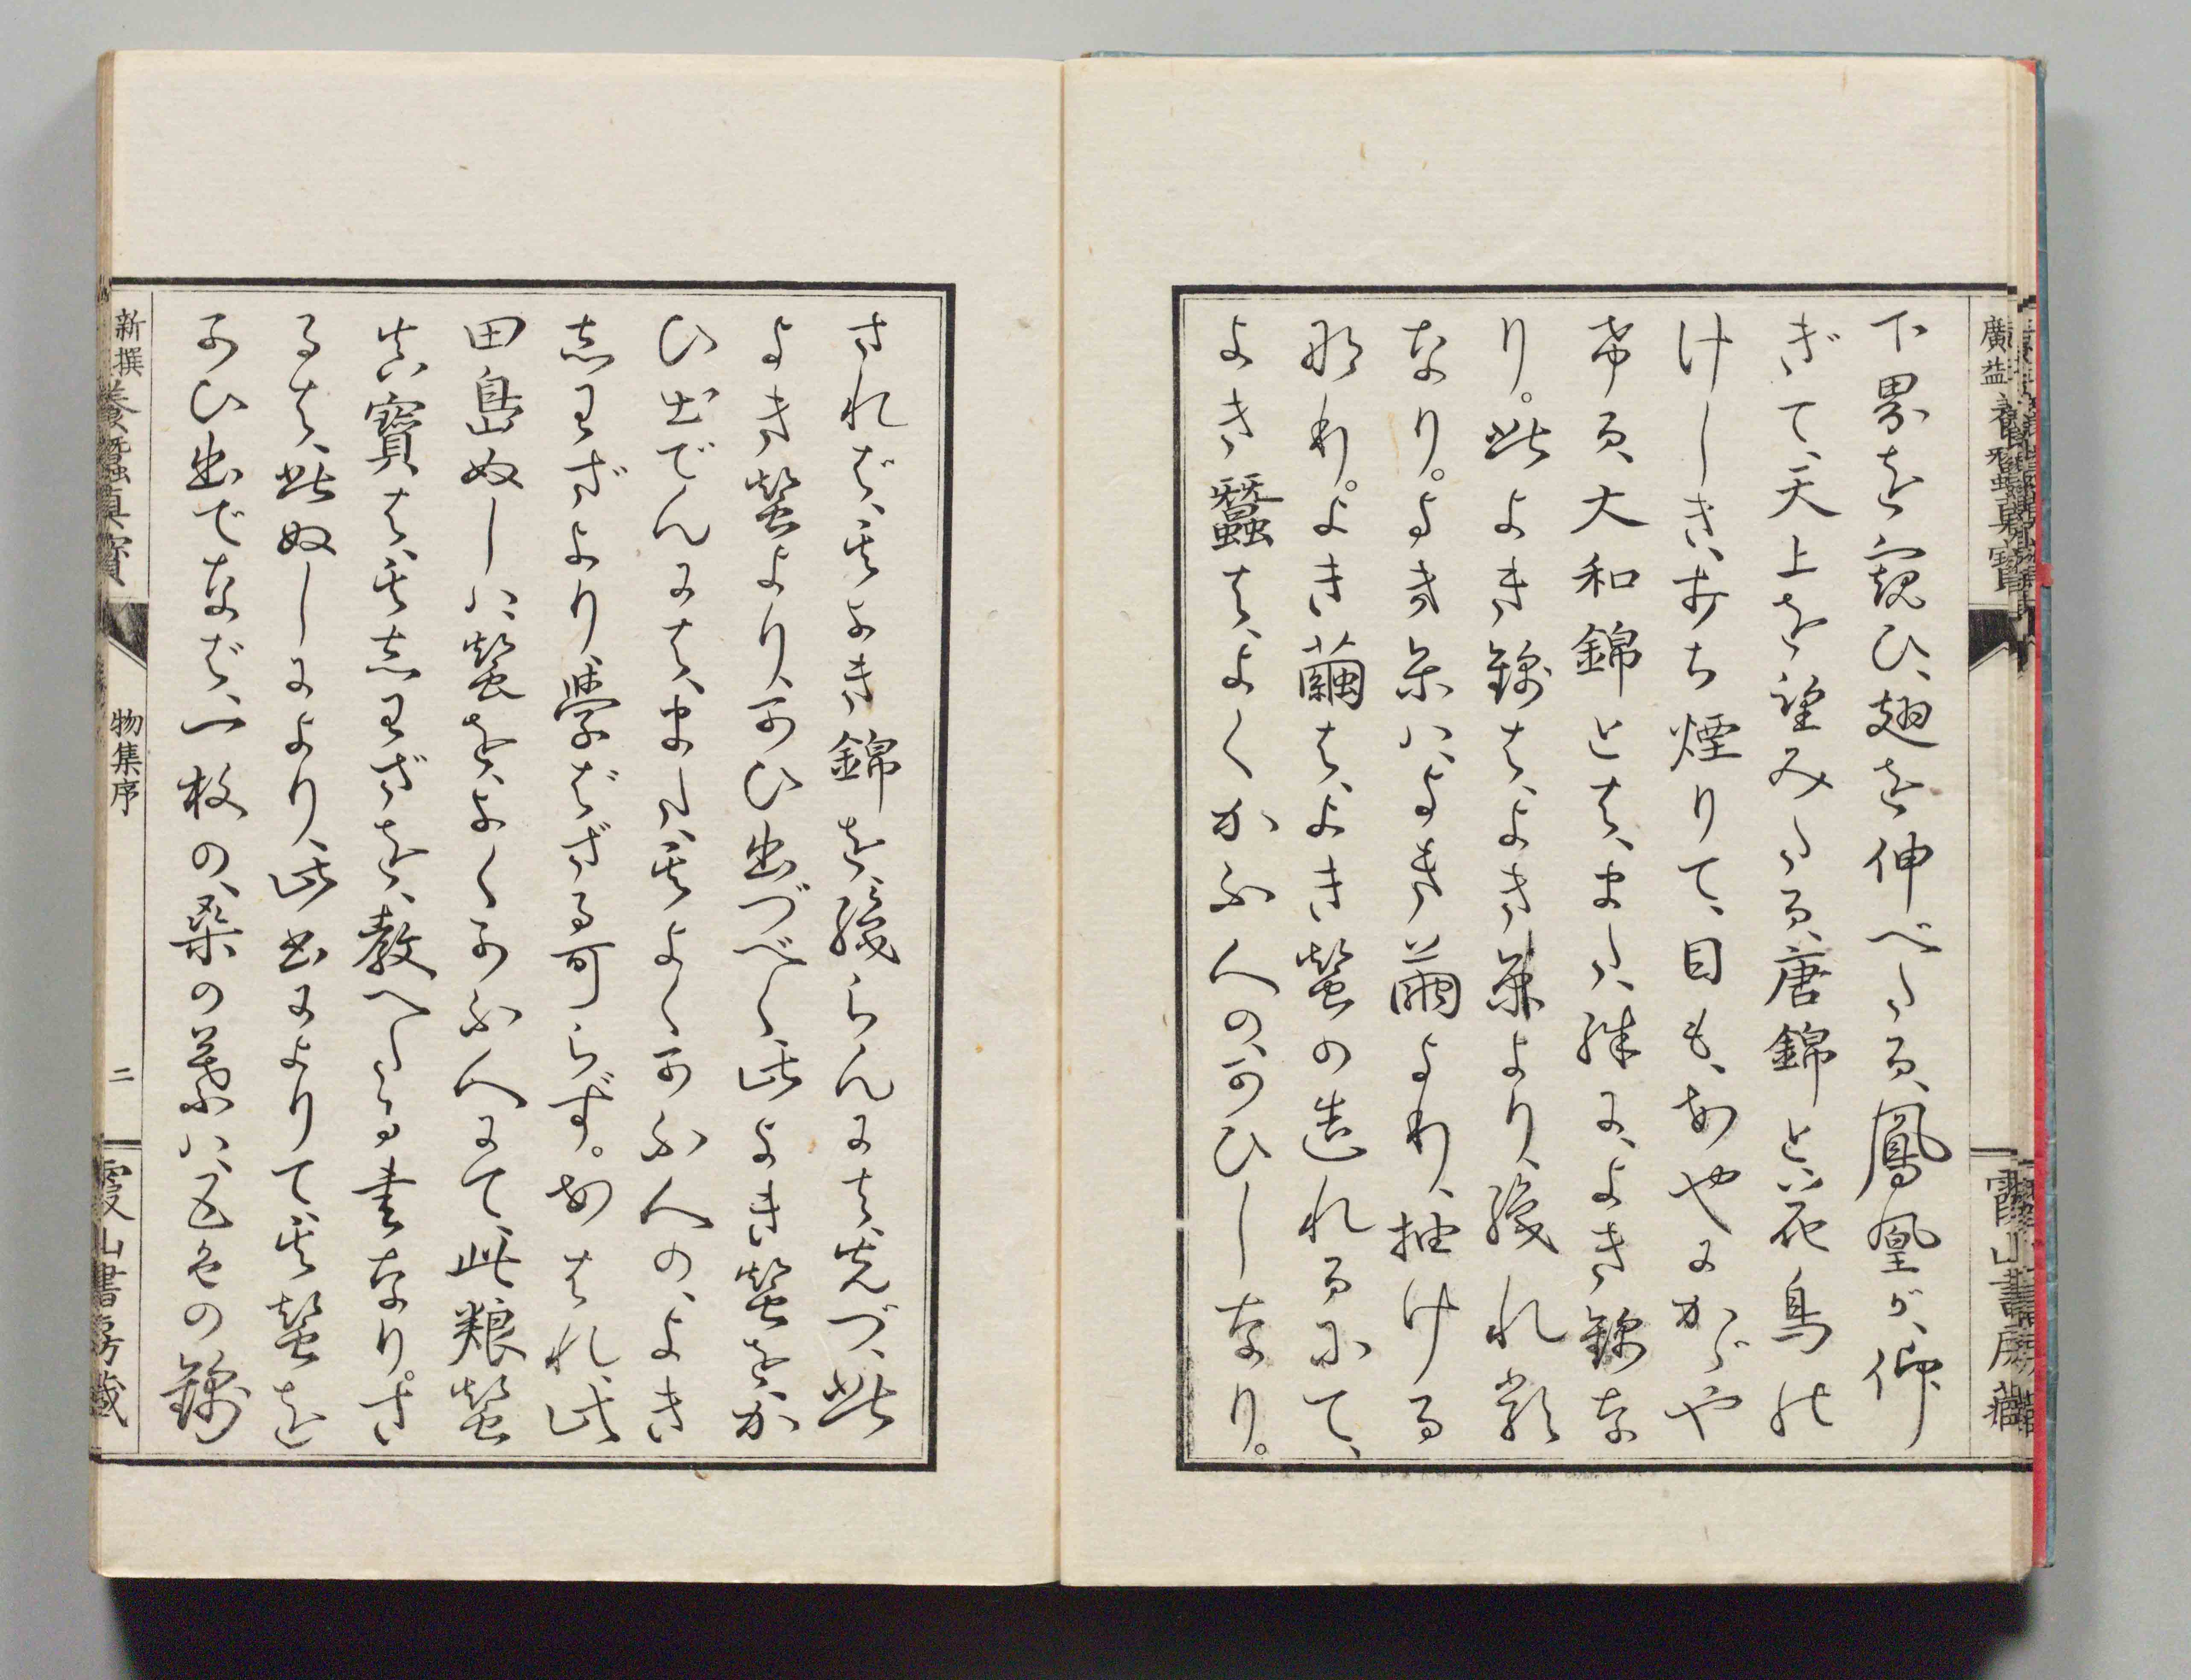 廣益養蠶真寶
霞山書房藏
下界を窺ひ、翅を伸べたる、鳳凰が、仰
ぎて、天上を望みたる、唐錦と、花鳥の
けしき、打ち煙りて、目も、あやにかゞや
ける、大和錦とは、また、殊に、よき錦な
り。此よき錦は、よき糸より、織れるの
なり。よき糸ハ、よき繭より、抽ける
なり。よき繭は、よき蠶の造れるにて、
よき蠶は、よくかふ人の、かひしなり。
されば、其よき錦を、織らんには、先づ、此
よき蠶より、かひ出づべく、此よき蠶を、か
ひ出でんには、また、其よくかふ人の、よき
志わざより、學ばざる可らず。あはれ、此
田島ぬしハ、蠶を、よくかふ人にて、此粮蠶
真寶は、其志わざを、教へたる書なり。さ
るは、此ぬしにより、此書によりて、其蠶を
かひ出でなば、一枚の、桑の葉ハ、五色の錦
新撰養蠶真寶
物集序
二
霞山書房藏